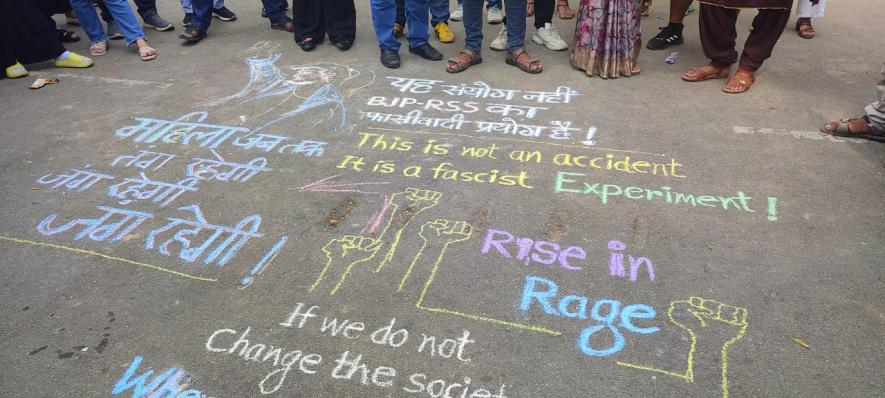 यह संयोग नहीं
BJP-RSS का
फासीवादी प्रयोग है!
महिला जब तक
तंग रहेगी
जंग रहेगी
जंग रहेगी!
This is not an accident
It is a fascist Experiment!
Rise in
Rage
If we do not
Change the societ